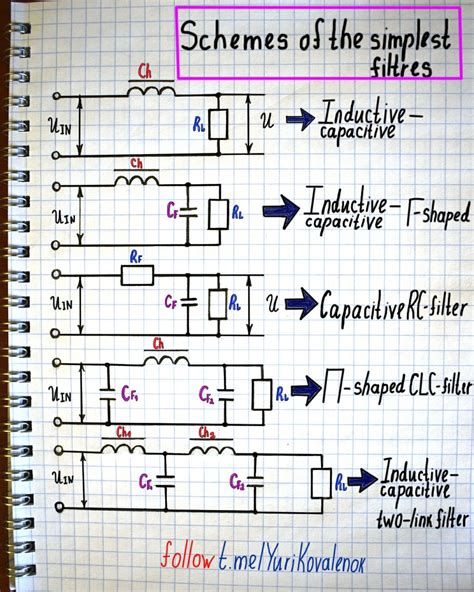 Schemes of the simplest
filtres
Ch
U IN
RL
U
Inductive-
capacitive
Ch
U IN
CF
RL
Inductive-
capacitive Г-shaped
RF
U IN
CF
RL
U
Capacitive RC-filter
Ch
U IN
CF1
CF2
RL
П-shaped CLC-filter
Ch1
Ch2
U IN
CF2
RL
Inductive-
capacitive
two-link filter
follow t.me/YuriKovalenok